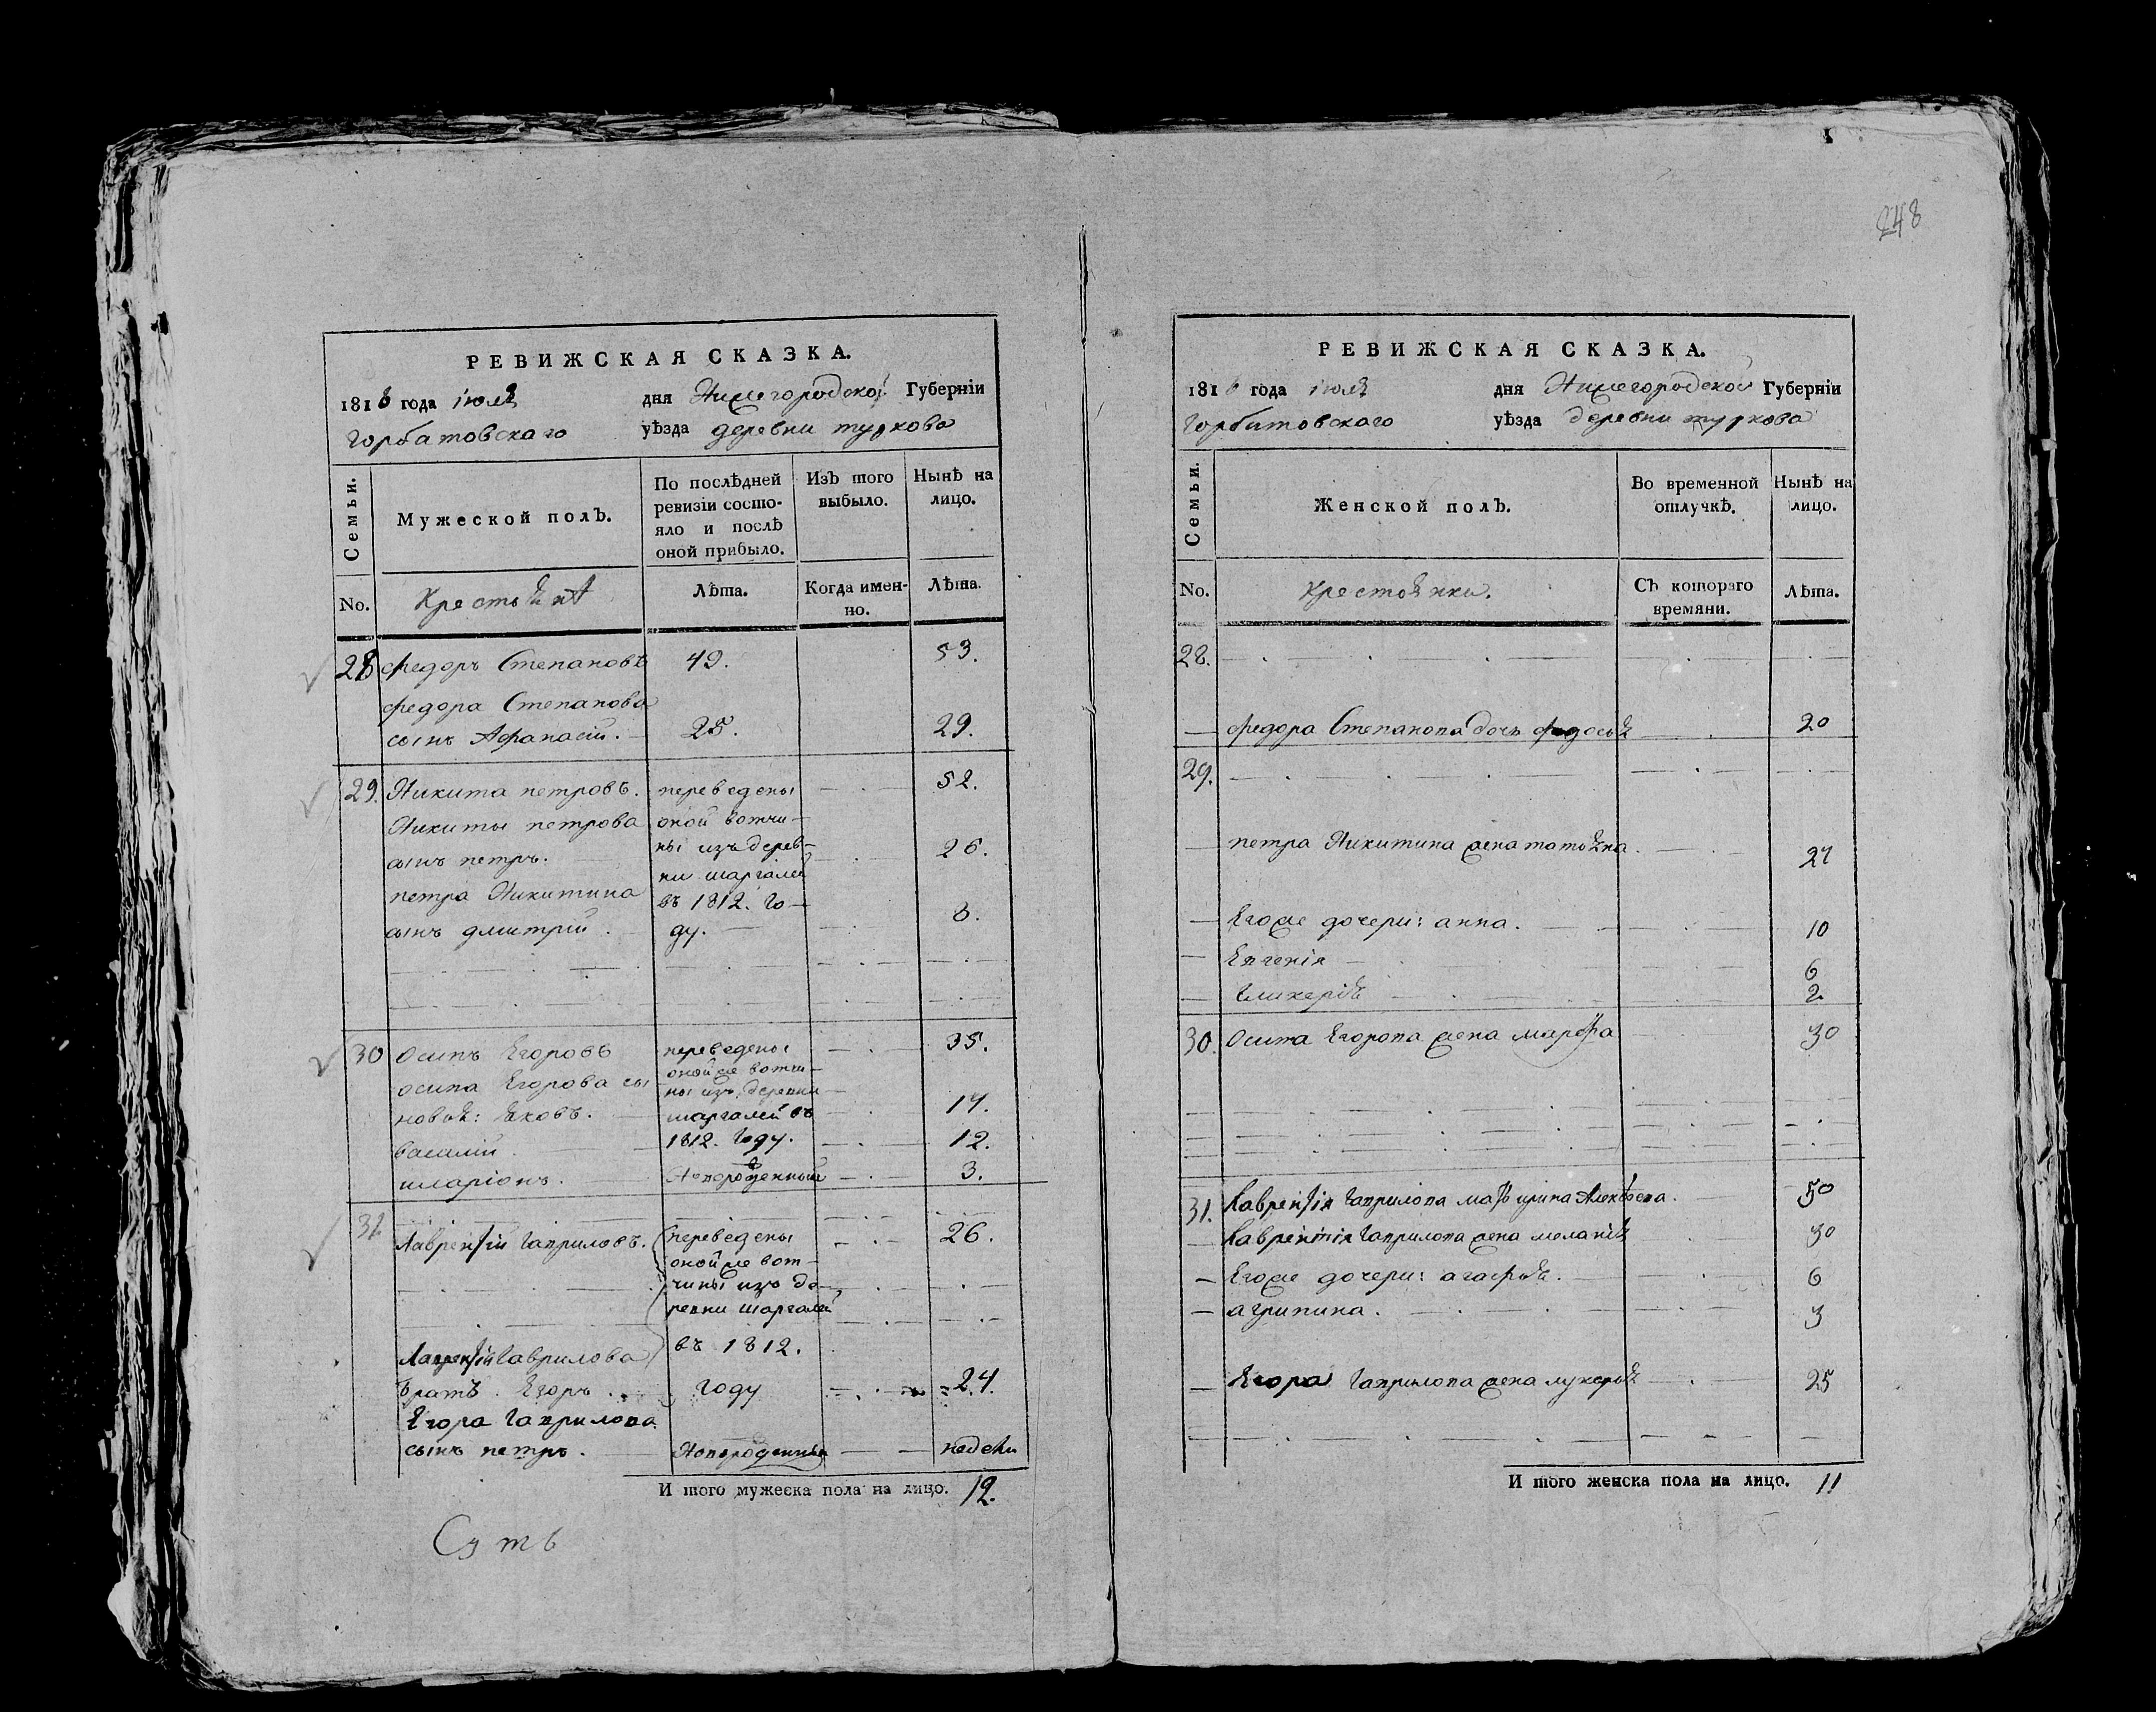 248
РЕВИЖСКАЯ СКАЗКА.
1816 года іюля дня Нижегородской Губерніи
Горбатовскаго уѣзда деревни туркова
Семьи.
Мужеской полъ.
По послѣдней
ревизіи состо-
яло и послѣ
оной прибыло.
Изъ того
выбыло.
Нынѣ на
лицо.
No.
Крестьянѣ
Лѣта.
Когда имен-
но.
Лѣта.
28 федоръ Степановъ 49. 53.
федора Степанова
сынъ Афанасій. 25. 29.
29. Никита петровъ. переведены 52.
Никиты петрова оной вотчи-
сынъ петръ. ны изъ дерев- 26.
ни шаргалей
петра Никитина въ 1812. го- 8.
сынъ дмитрій. ду.
30 осипъ Егоровъ переведены 35.
оной же вотчи-
осипа Егорова сы ны изъ деревни
новья: яковъ. шаргалей въ 14.
василій 1812. году. 12.
иларіонъ. Новорожденный 3.
31. Лаврентій Гавриловъ. переведены 26.
оной же вот-
чины изъ де-
ревни шаргалей
Лаврентія Гаврилова въ 1812.
братъ Егоръ. году 24.
Егора Гаврилова
сынъ петръ. Новорожденный недели
И того мужеска пола на лицо. 12.
Суть
РЕВИЖСКАЯ СКАЗКА.
1816 года іюля дня Нижегородской Губерніи
Горбатовскаго уѣзда деревни туркова
Семьи.
Женской полъ.
Во временной
отлучкѣ.
Нынѣ на
лицо.
No.
Крестьянки.
Съ котораго
времяни.
Лѣта.
28.
федора Степанова дочь федосья 20
29.
петра Никитина жена татьяна 27
Егоже дочери: анна. 10
Евгенія 6
Гликерія 2.
30. Осипа Егорова жена марфа 30
31. Лаврентія Гаврилова мать ирина Алексѣева 50
Лаврентія Гаврилова жена меланія 30
Егоже дочери: агафья. 6
агрипина. 3
Егора Гаврилова жена лукерья 25
И того женска пола на лицо. 11